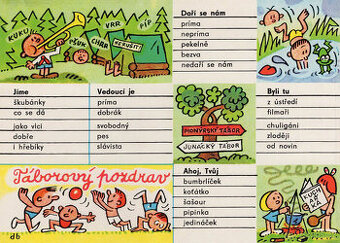 KUKU
VRR
PÍP
PŠUK
CHRR
NERUŠIT!
Daří se nám
príma
nepríma
pekelně
bezva
nedaří se nám
Jíme
škubánky
co se dá
jako vlci
dobře
i hřebíky
Vedoucí je
príma
dobrák
svobodný
pes
slávista
MOHYKSKÝ TÁBOR
JUNÁCKÝ TÁBOR
Byli tu
z ústředí
filmaři
chuligáni
zloději
od novin
Táborový pozdrav
db
Ahoj, Tvůj
bumbrlíček
koťátko
šašour
pipinka
jedináček